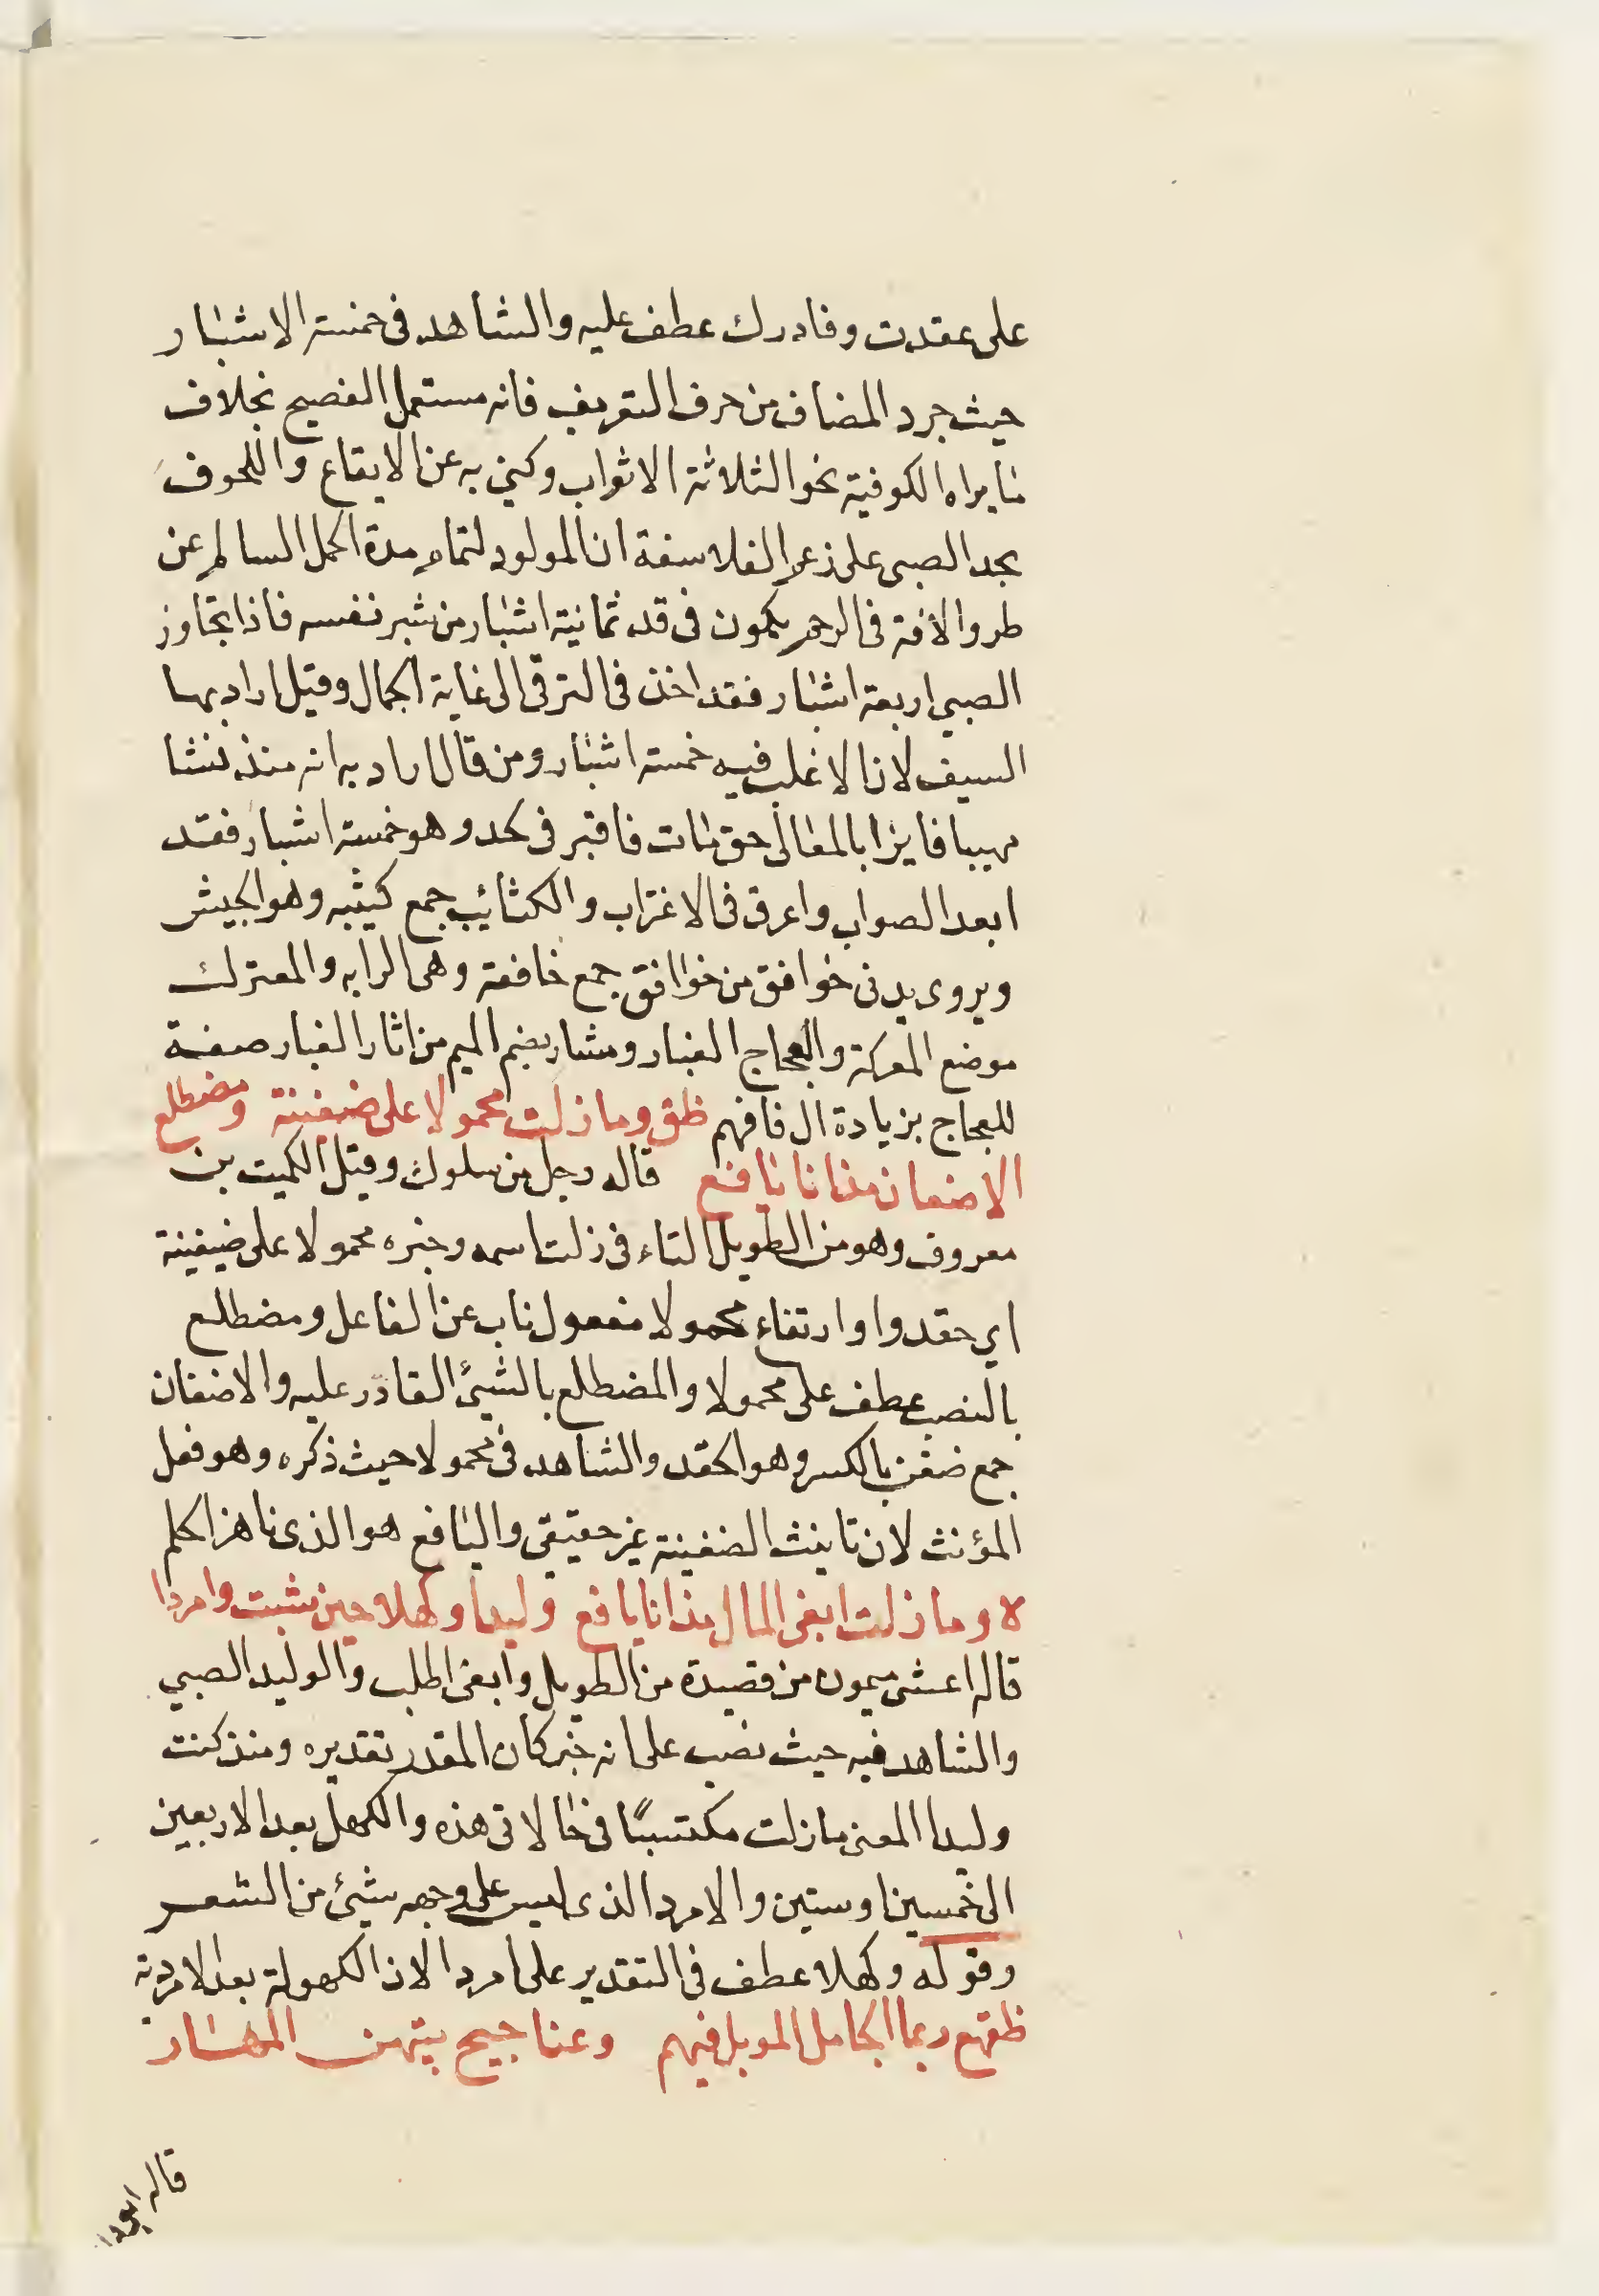 على عقدت وفادرك عطف عليه والشاهد فى خمسة الاشبار
حيث جرد المضاف من حرف التعريف فانه مستعمل الفصيح بخلاف
ما يراه الكوفية نحو الثلاثة الاثواب وكني به عن الايقاع واللحوف
بجد الصبى على زعم الفلاسفة ان المولود لتمام مدة الحمل السالم عن
طرو الافة فى الرحم يكون فى قد ثمانية اشبار من شبر نفسه فاذا تجاوز
الصبي اربعة اشبار فقد اخذ فى الترقى الى غاية الجمال وقيل اراد بها
السيف لان الاغلب فيه خمسة اشبار ومن قال اراد به انه منذ نشا
مهيبا فايزا بالمعالى حق مات فاقبر فى لحد وهو خمسة اشبار فقد
ابعد الصواب واعرق فى الاغتراب والكتائب جمع كتيبه وهو الجيش
ويروى يدنى خوافق من خوافق جمع خافقة وهى الرايه والمعترك
موضع المعركة والعجاج الغبار ومثار بضم الميم من اثار الغبار صفة
للعجاج بزيادة ال فافهم ظق وما زلت محمولا على ضغينة ومضطلع
الاضغان مذ انا يافع قاله رجل من سلول وقيل الكميت بن
معروف وهو من الطويل التاء فى زلت اسمه وخبره محمولا على ضيغينة
اي حقدوا وارتفاء محمولا مفعول ناب عن الفاعل ومضطلع
بالنصب عطف على محمولا والمضطلع بالشيئ القادر عليه والاضغان
جمع ضغن بالكسر وهو الحقد والشاهد فى محمولا حيث ذكره وهو فعل
المؤنث لان تانيث الضغينة غير حقيقى واليافع هو الذى ناهز الحلم
ه وما زلت ابغى المال مذ انا يافع وليدا وكهلا حين شبت وامردا
قاله اعشى ميمون من قصيدة من الطويل وابغى اطلب والوليد الصبي
والشاهد فيه حيث نصب على انه خبر كان المقدر تقديره ومنذ كنت
وليدا المعنى ما زلت مكتسبًا فى حالاتى هذه والكهل بعد الاربعين
الى خمسين او ستين والامرد الذى ليس على وجهه شيئ من الشعر
وقوله وكهلا عطف فى التقدير على امردا لان الكهولة بعد الامردية
ظقهع ربما الجامل الموبل فيهم وعناجيج بينهن المهار
قاله ابودا